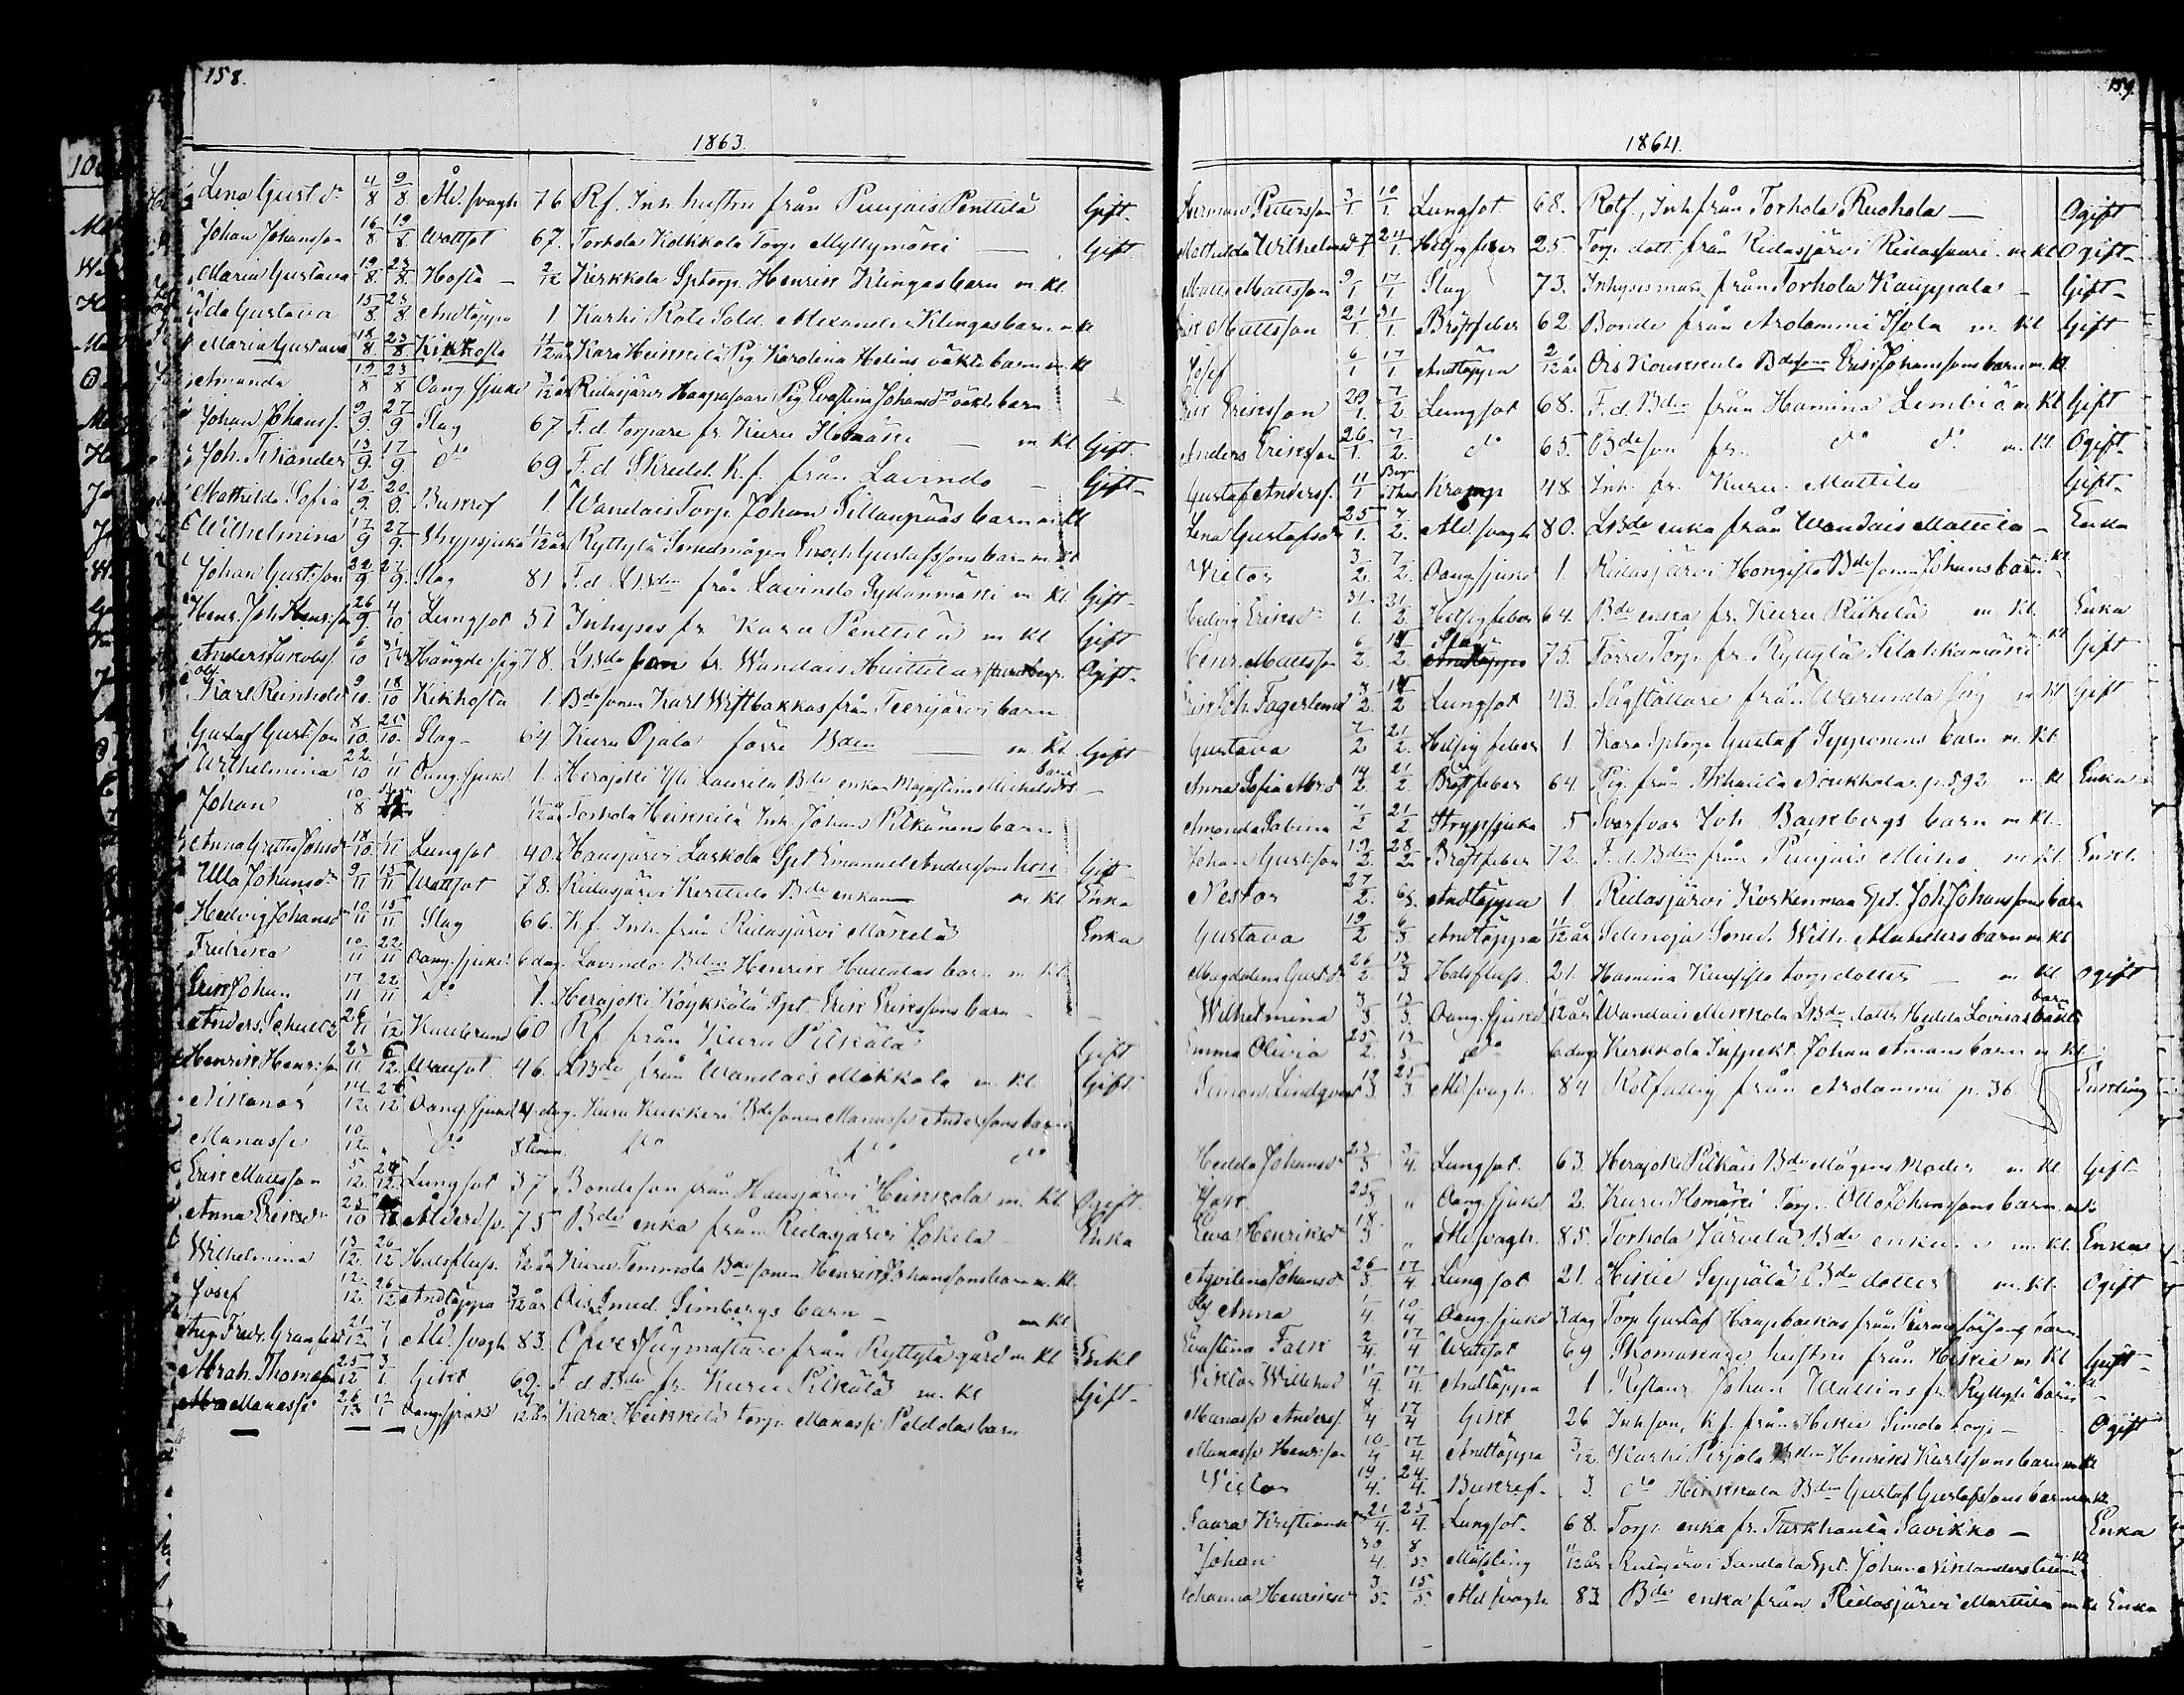 158.
1863.
Lena Gust.dr 4/8 9/8 Åld.svagh 76 Rf. Inh. hustru från Puujais Penttilä Gift
Johan Johansson 16/8 19/8 Wattsot 67. Torhola Kolkkola Torp. Myllymäki Gift
Maria Gustava 19/8 23/8 Hosta 2/12 Kirkkola Sptorp. Henrik Klingas barn m. kl.
Ida Gustava 15/8 23/8 Andtäppa 1. Karhi Rote Sold. Alexander Klingas barn m kl
Maria Gustava 18/8 23/8 Kikhosta 11/12 år Kara Heikkilä Pig. Karolina Helins oäkta barn m. kl
Amanda 19/8 23/8 Oang. sjukd 3/12 år Ridasjärvi Haapasaari Pig Evastina Johansdrs oäkta barn
Johan Johanss. 9/9 27/9 Slag 67 F.d. torpare fr. Kuru Ilomäki m kl. Gift
Joh. Tikander 13/9 17/9 do 69 F.d Skrädd. K.f. från Lavindo Gift
Mathilda Sofia 12/9 20/9 Bukref 1 Wandais Torp. Johan Sillanpääs barn m kl
Wilhelmina 17/9 27/9 Strypsjuka 11/12 år Ryttylä Smedmågen Enoch Gustafssons barn m. kl
Johan Gustsson 22/9 27/9 Slag 81 F.d. LBde från Lavindo Sydänmäki m kl Gift
Henr. Joh. Henr.son 26/9 4/10 Lungsot 51 Inhyses fr Kara Penttilä m kl Gift
Anders Jakobss. 6/10 Hängde sig 78. LBde son fr. Wandais Huittila Ogift
Karl Reinhold 9/10 18/10 Kikhosta 1. Bdesonen Karl Wistbakkas från Teerijärvi barn
Gustaf Gustsson 8/10 25/10 Slag 64 Kuru Ojala förre Bden m kl Gift
Wilhelmina 22/10 1/11 Oang. sjukd 1. Herajoki Yli Laurila Bde enkan Majastina Michelsdrs barn
Johan 10/8 11/12 år Torhola Heikkilä Inh. Johan Pitkänens barn
Anna Greta Johsdr 18/10 1/11 Lungsot 40. Hausjärvi Laskola Spt Emanuel Anderssons hu Gift
Ulla Johansdr 9/11 15/11 Wattsot 78. Ridasjärvi Kerttula Bde enkan m kl Enka
Hedvig Johansdr 10/11 15/11 Slag 66. Kf. Inh. från Ridasjärvi Mäkelä Enka
Fredrika 10/11 22/11 Oang. sjukd. 6 dag. Lavindo Bden Henrik Huldalas barn m kl.
Erik Johan 17/11 22/11 do 1. Herajoki Köykkälä Spt. Erik Erikssons barn
Anders Schultz 26/11 1/12 Kallbrand 60 Rf. från Kuru Pitkälä Gift
Henrik Henr.son 23/11 6/12 Wattsot 46. LBde från Wandais Mikkola m. kl. Gift
Nikanor 14/12 26/12 Oang. sjukd 14 dag. Kuru Kukkeri Bdesonen Manasse Anderssons barn
Manasse 10/12 " do 8 timm. do do do
Erik Mattsson 5/12 26/12 Lungsot 37 Bondeson från Hausjärvi Heikkola m. kl. Ogift
Anna Eriksdr 23/10 Ålderd.sv. 75 Bde enka från Ridasjärvi Jokela Enka
Wilhelmina 13/12 26/12 Halsfluss 8/12 år Kuru Temmola Bde sonen Henrik Johanssons barn m. kl.
Josef 12/12 26/12 Andtäppa 3/12 år Ois Smed. Limbergs barn m kl
Aug. Fredr. Granstedt 21/12 1/1 Åld. svagh 83. Öfver Sågmästare från Ryttylä gård m kl Enkl
Abrah. Thomasson 25/12 3/1 Gikt 69. F.d Bde fr. Kuru Pitkälä m. kl Gift
Manasse 26/12 17/1 Oang. sjukd Kara Heikkilä torp. Manasse Peldolas barn
159.
1864.
Herman Petersson 3/1 10/1 Lungsot 68. Rotf., Inh från Torhola, Ruohola Ogift
Mathilda Wilhelmsdr 7/1 24/1 Hetsig feber 25. Torp. dott. från Ridasjärvi Ridasaari m kl Ogift
Matts Mattsson 9/1 17/1 Slag 73. Inhyses man från Torhola Kauppala Gift
Erik Mattsson 21/1 31/1 Bröstfeber 62. Bonde från Arolammi Isola m kl Gift
Josef 6/1 17/1 Andtäppa 2/12 år Ois Kouskula Bdesonen Erik Johanssons barn m. kl.
Erik Eriksson 29/1 7/2 Lungsot 68. F.d. Bden från Hamina Lembiä m kl Gift
Anders Eriksson 26/1 7/2 do 65. Bdeson fr. do do m. kl Ogift
Gustaf Anderss. 11/1 Kramp 48 Inh. fr. Kuru Mattila Gift
Lena Gustafsdr 25/1 7/2 Åld. svagh 80. LBde enka från Wandais Mattila Enka
Victor 3/2 7/2 Oang. sjukd 1. Ridasjärvi Hongisto Bdesonen Johans barn m. kl.
Hedvig Eriksdr 31/1 21/2 Hetsig feber 64. Bde enka fr. Kuru Riikilä m kl. Enka
Henr. Mattsson 6/2 14/2 Slag 75. Förre Torp. fr. Ryttylä Silakkamäki kl Gift
Erik Joh. Fagerlund 3/2 14/2 Lungsot 43. Sågställare från Warunda såg m kl Gift
Gustava 7/2 21/2 Hetsig feber 1. Kara Sptorp. Gustaf Sepponens barn m. kl.
Anna Sofia Abr.dr 14/2 21/2 Bröstfeber 64. Pig. från Turkhauta Noukkola p. 592 m kl Enka
Amanda Sabina 7/2 21/2 Strypsjuka 5 Svarfvar Joh Backbergs barn m kl.
Johan Gustsson 19/2 28/2 Bröstfeber 72. F.d. Bden från Puujais Mikko m. kl. Enkl.
Nestor 27/2 6/3 Andtäppa 1 Ridasjärvi Koskenmaa Spt. Joh. Johanssons barn
Gustava 19/2 6/3 Andtäppa 11/12 år Selänoja Smed. Wilh. Manders barn m kl
Magdalena Gust.dr 26/2 13/3 Halsfluss 21. Hamina Kuusisto torp. dotter m kl Ogift
Wilhelmina 3/3 13/3 Oang. sjukd 1/12 år Wandais Mikkola LBde dotter Hedda Lovisas barn
Emma Olivia 25/2 13/3 do 6 dag. Kirkkola Inspekt. Johan Åmans barn m kl
Simon Lindqvist 19/3 25/3 Åld. svagh. 84 Rotfattig från Arolammi p. 36 Enkling
Hedda Johansdr 23/3 3/4 Lungsot 63. Herajoki Pitkäis Bde Mågens Moder m kl Gift
25/3 " Oang. sjukd 2. Kuru Ilomäki Torp. Otto Johanssons barn m kl
Eva Henriksdr 18/3 " Åld. svagh. 85. Torhola Järvelä Bde enka m. kl. Enka
Aqvilina Johansdr 26/3 17/4 Lungsot 21. Hikiä Seppälä Bde dotter m. kl. Ogift
Anna 1/4 10/4 Oang. sjukd 2 dag Torp. Gustaf Haapbackas från församling barn
Evastina Falk 2/4 17/4 Wattsot 69 Skomakare hustru från Hikiä m kl Gift
Viktor Willehad 11/4 17/4 Andtäppa 1 Restaur. Johan Wallins fr. Ryttylä barn kl
Manasse Anderss. 8/4 17/4 Gikt 26 Inh son, kf. från Hikiä Simola torp Ogift
Manasse Henrsson 10/4 17/4 Andtäppa 3/12 Karhi Pirjola Bden Henriks Karlssons barn m kl
Victor 19/4 24/4 Bukref. 3. do Heikkala Bden Gustaf Gustafssons barn m kl
Laura Kristiansdr 21/4 25/4 Lungsot. 68. Torp. enka fr. Turkhauta Savikko Enka
Johan 30/4 8/5 Mässling 11/12 år Ridasjärvi Landala Spt. Johan Niklanders barn
Johanna Henriksdr 3/5 15/5 Åld. svagh. 83 Bde enka från Ridasjärvi Marttila m kl Enka